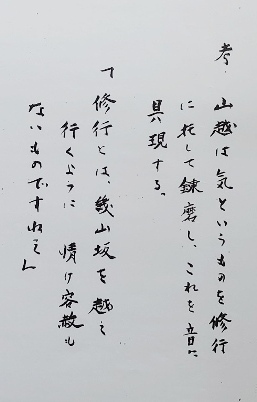 考．山越は気というものを修行
に托して錬磨し、これを音に
具現する。
「修行とは、幾山坂を越え
行くように 情け容赦も
ないものですねえ」